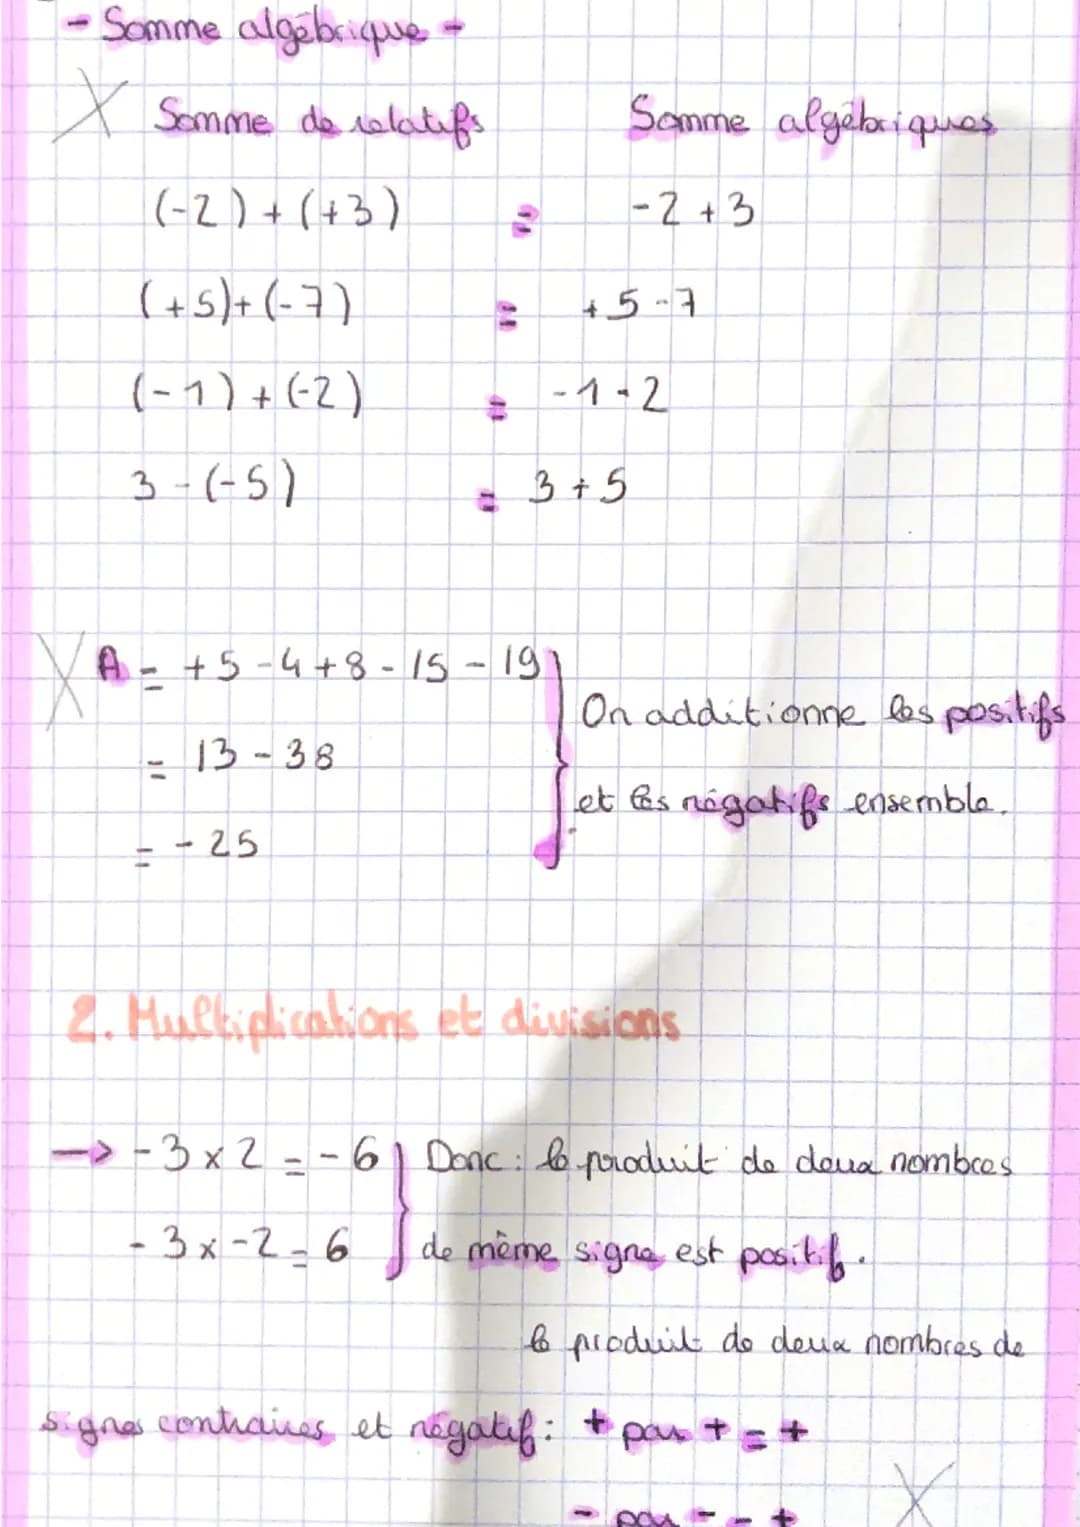 - Somme algébrique -
Somme de relatifs Somme algébriques
(-2) + (+3) = -2 +3
(+5)+(-7) = +5-7
(-1)+(-2) = -1-2
3-(-5) = 3+5
A = +5-4+8-15-19
= 13-38
= -25
On additionne les positifs
et les négatifs ensemble.
2. Multiplications et divisions
→ -3 x 2 = -6 } Donc : le produit de deux nombres
-3 x -2 = 6 de même signe est positif.
le produit de deux nombres de
signes contraires et négatif : + par + = +
- par - = +